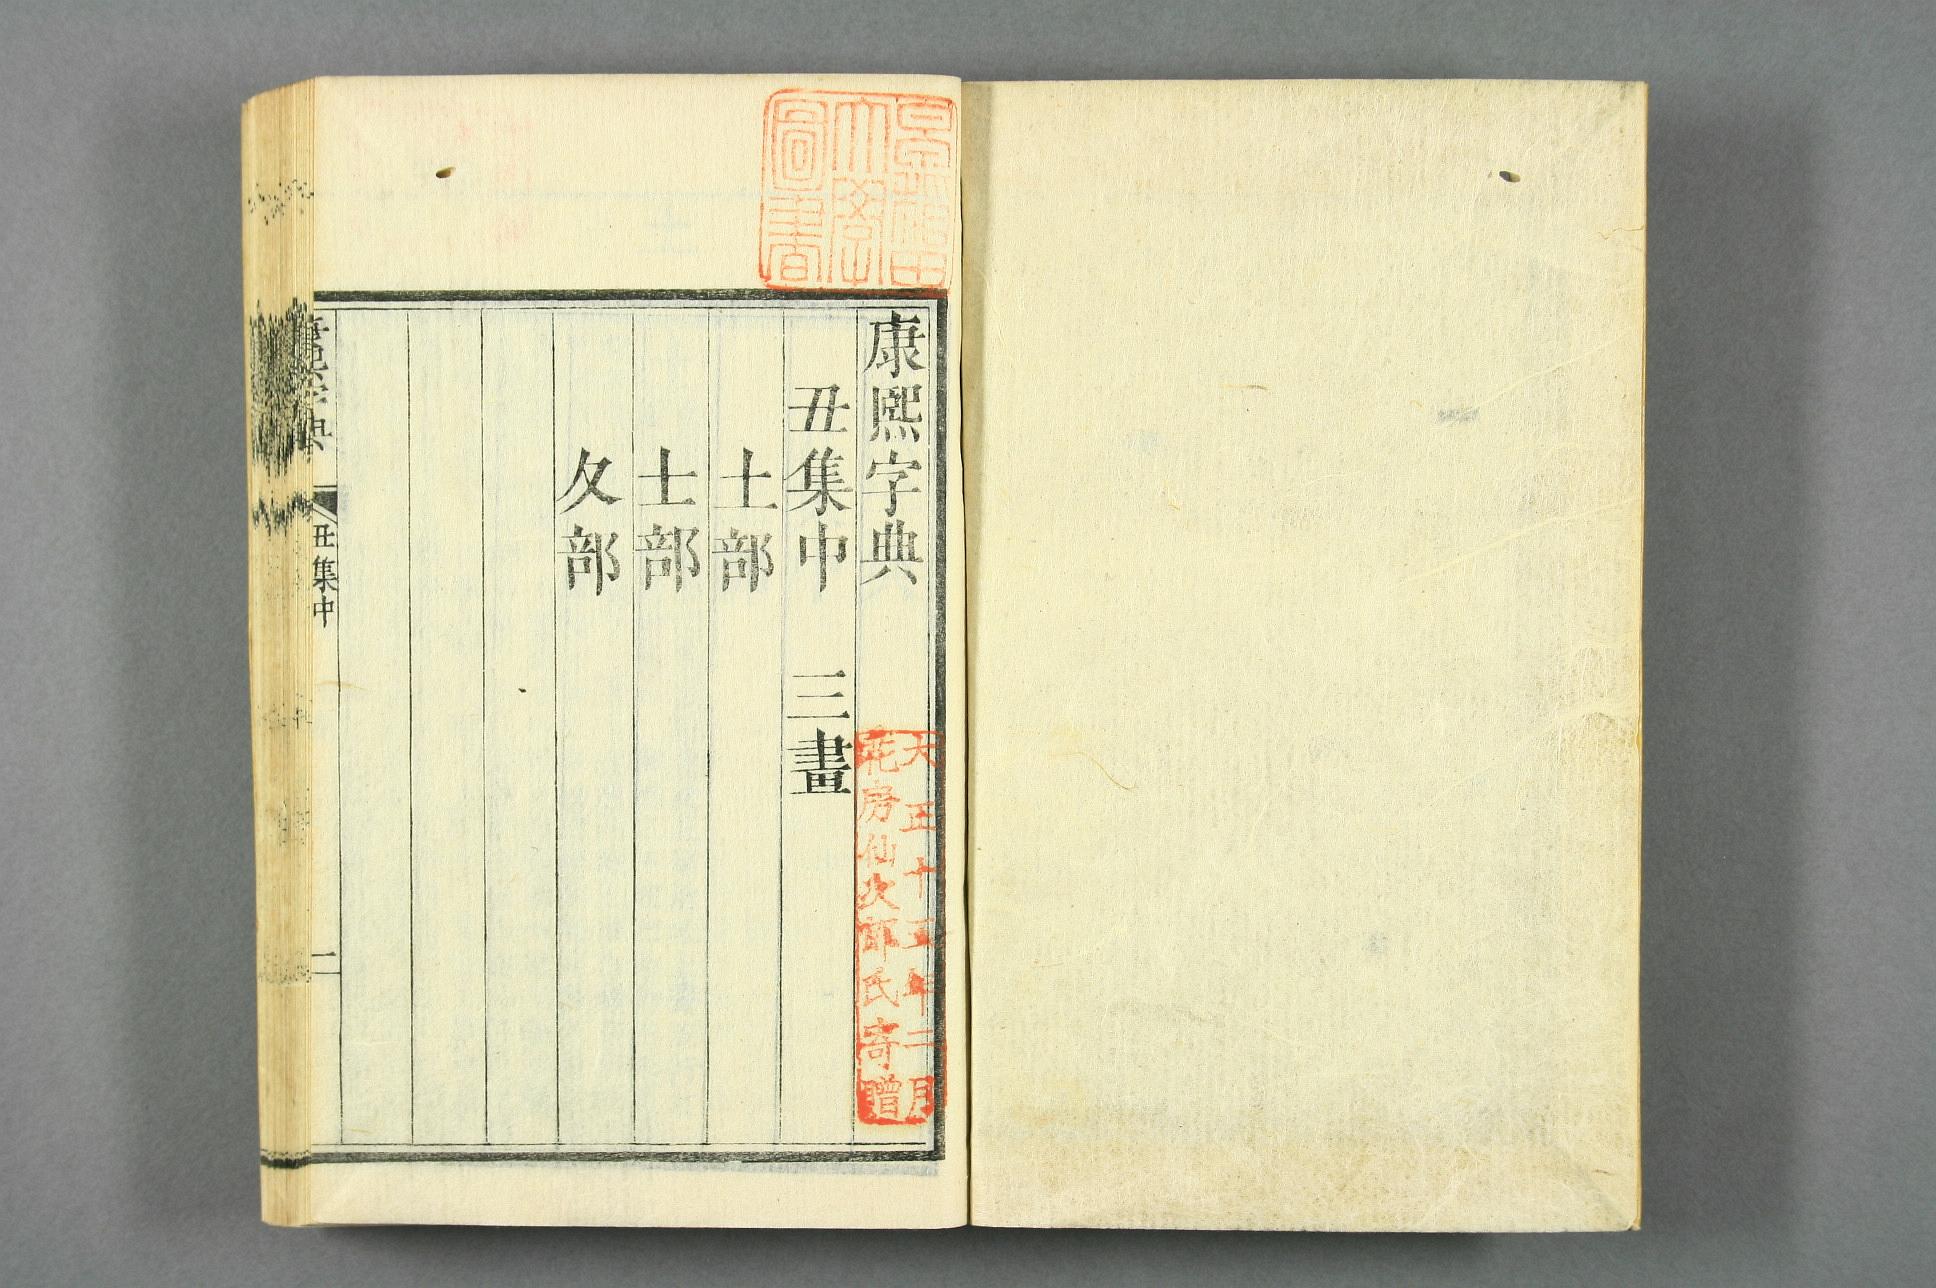 早稻田
大學
圖書
康熙字典
丑集中 三畫
土部
士部
夂部
大正十五年二月
花房仙次郎氏寄贈
康熙字典
丑集中